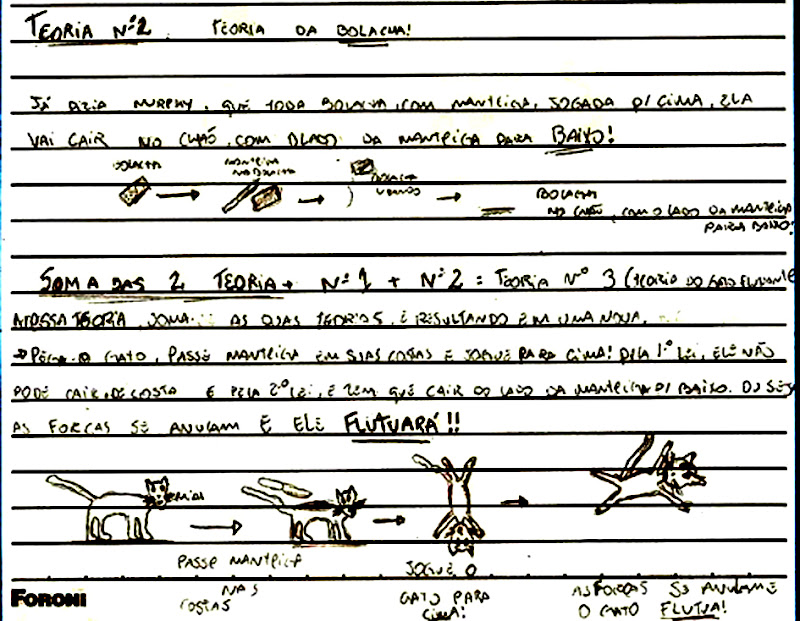 TEORIA Nº2. TEORIA DA BOLACHA!
JÁ DIZIA MURPHY, QUE TODA BOLACHA, COM MANTEIGA, JOGADA P/ CIMA, ELA
VAI CAIR NO CHÃO, COM O LADO DA MANTEIGA PARA BAIXO!
BOLACHA
MANTEIGA
NA BOLACHA
BOLACHA
BOLACHA
NO CHÃO, COM O LADO DA MANTEIGA
PARA BAIXO!
SOMA DAS 2 TEORIA Nº1 + Nº2 = TEORIA Nº 3 (TEORIA DO GATO FLUTUANTE
NOSSA TEORIA, SOMA AS DUAS TEORIAS, E RESULTANDO EM UMA NOVA.
PEGA O GATO, PASSE MANTEIGA EM SUAS COSTAS E JOGUE PARA CIMA! PELA 1º LEI, ELE NÃO
PODE CAIR, DE COSTA E PELA 2º LEI, E TEM QUE CAIR DO LADO DA MANTEIGA P/ BAIXO. OU SEJA
AS FORCAS SE ANULAM E ELE FLUTUARÁ!!
PASSE MANTEIGA
NAS
COSTAS
JOGUE O
GATO PARA
CIMA!
AS FORCAS SE ANULAM E
O GATO FLUTUA!
FORONI